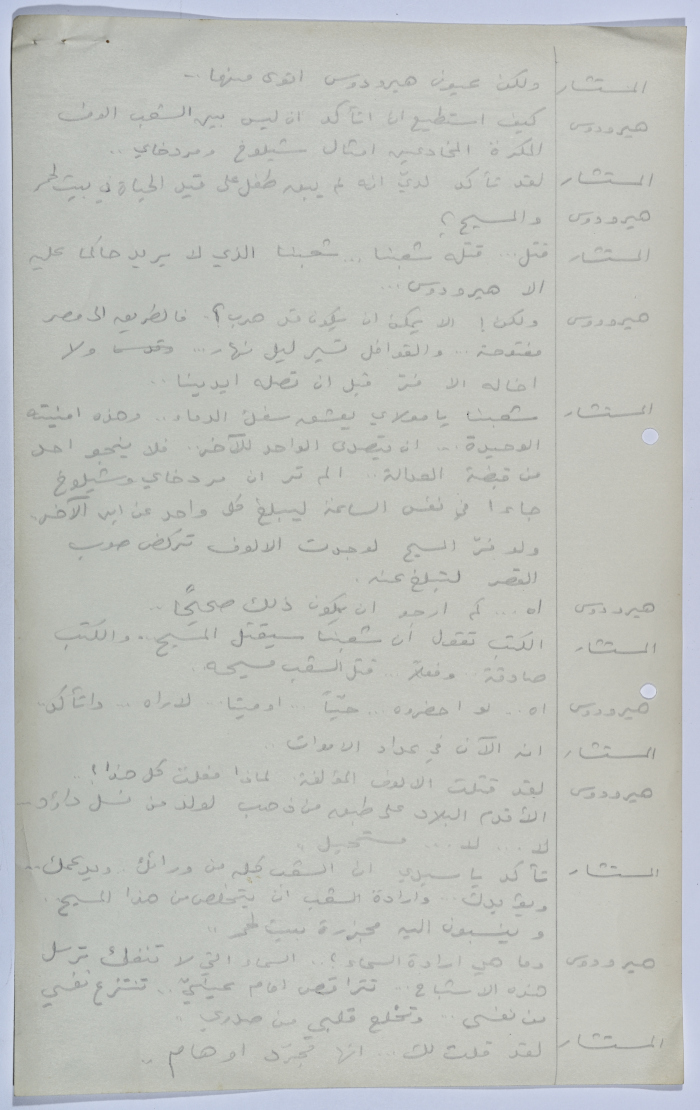 المستشار ولكن عيون هيرودوس اقوى منها ..
هيرودوس كيف استطيع ان اتأكد ان ليس بين الشعب الوف
المكرة المخادعين امثال شيلوخ ومردخاي ..
المستشار لقد تأكد لديّ انه لم يبق طفل على قيد الحياة في بيت لحم
هيرودوس والمسيح ؟
المستشار قتل ... قتله شعبنا ... شعبنا الذي لا يريد حاكما عليه
الا هيرودوس ...
هيرودوس ولكن ! الا يمكن ان يكون قد هرب ؟. فالطريق الى مصر
مفتوحة .. والقوافل تسير ليل نهار ... ولا
اخاله الا فرّ قبل ان تصله ايدينا ..
المستشار شعبنا يا مولاي يعشق سفك الدماء .. وهذه امنيته
الوحيدة ... ان يتصدى الواحد للآخر .. فلا ينجو احد
من قبضة العدالة .. الم تر ان مردخاي وشيلوخ
جاءا في نفس الساعة ليبلغ كل واحد عن ابن الآخر .
ولو فرّ المسيح لوجدت الالوف تركض صوب
القصر لتبلغ عنه .
هيرودوس اه ... كم ارجو ان يكون ذلك صحيحًا ..
المستشار الكتب تقول أن شعبنا سيقتل المسيح .. والكتب
صادقة .. وفعلا ... قتل الشعب مسيحه .
هيرودوس اه .. لو احضروه ... حيّاً ... او ميتا ... لاراه ... واتأكد ..
المستشار انه الآن في عداد الاموات ..
هيرودوس لقد قتلت الالوف المؤلفة . لماذا فعلت كل هذا ! ..
الأقدم البلاد على طبق من ذهب لولد من نسل داؤد ...
لا .... لا ... مستحيل .
المستشار تأكد يا سيدي ان الشعب كله من ورائك .. ويدعمك ...
ويؤيدك ... وارادة الشعب ان يتخلص من هذا المسيح .
و ينسبون اليه مجزرة بيت لحم ..
هيرودوس وما هي ارادة السماء ؟ .. السماء التي لا تنفك ترسل
هذه الاشباح ... تتراقص امام عينيّ .. تنتزع نفسي
من نفسي ... وتخلع قلبي من صدري ..
المستشار لقد قلت لك ... انها مجرّد اوهام ..